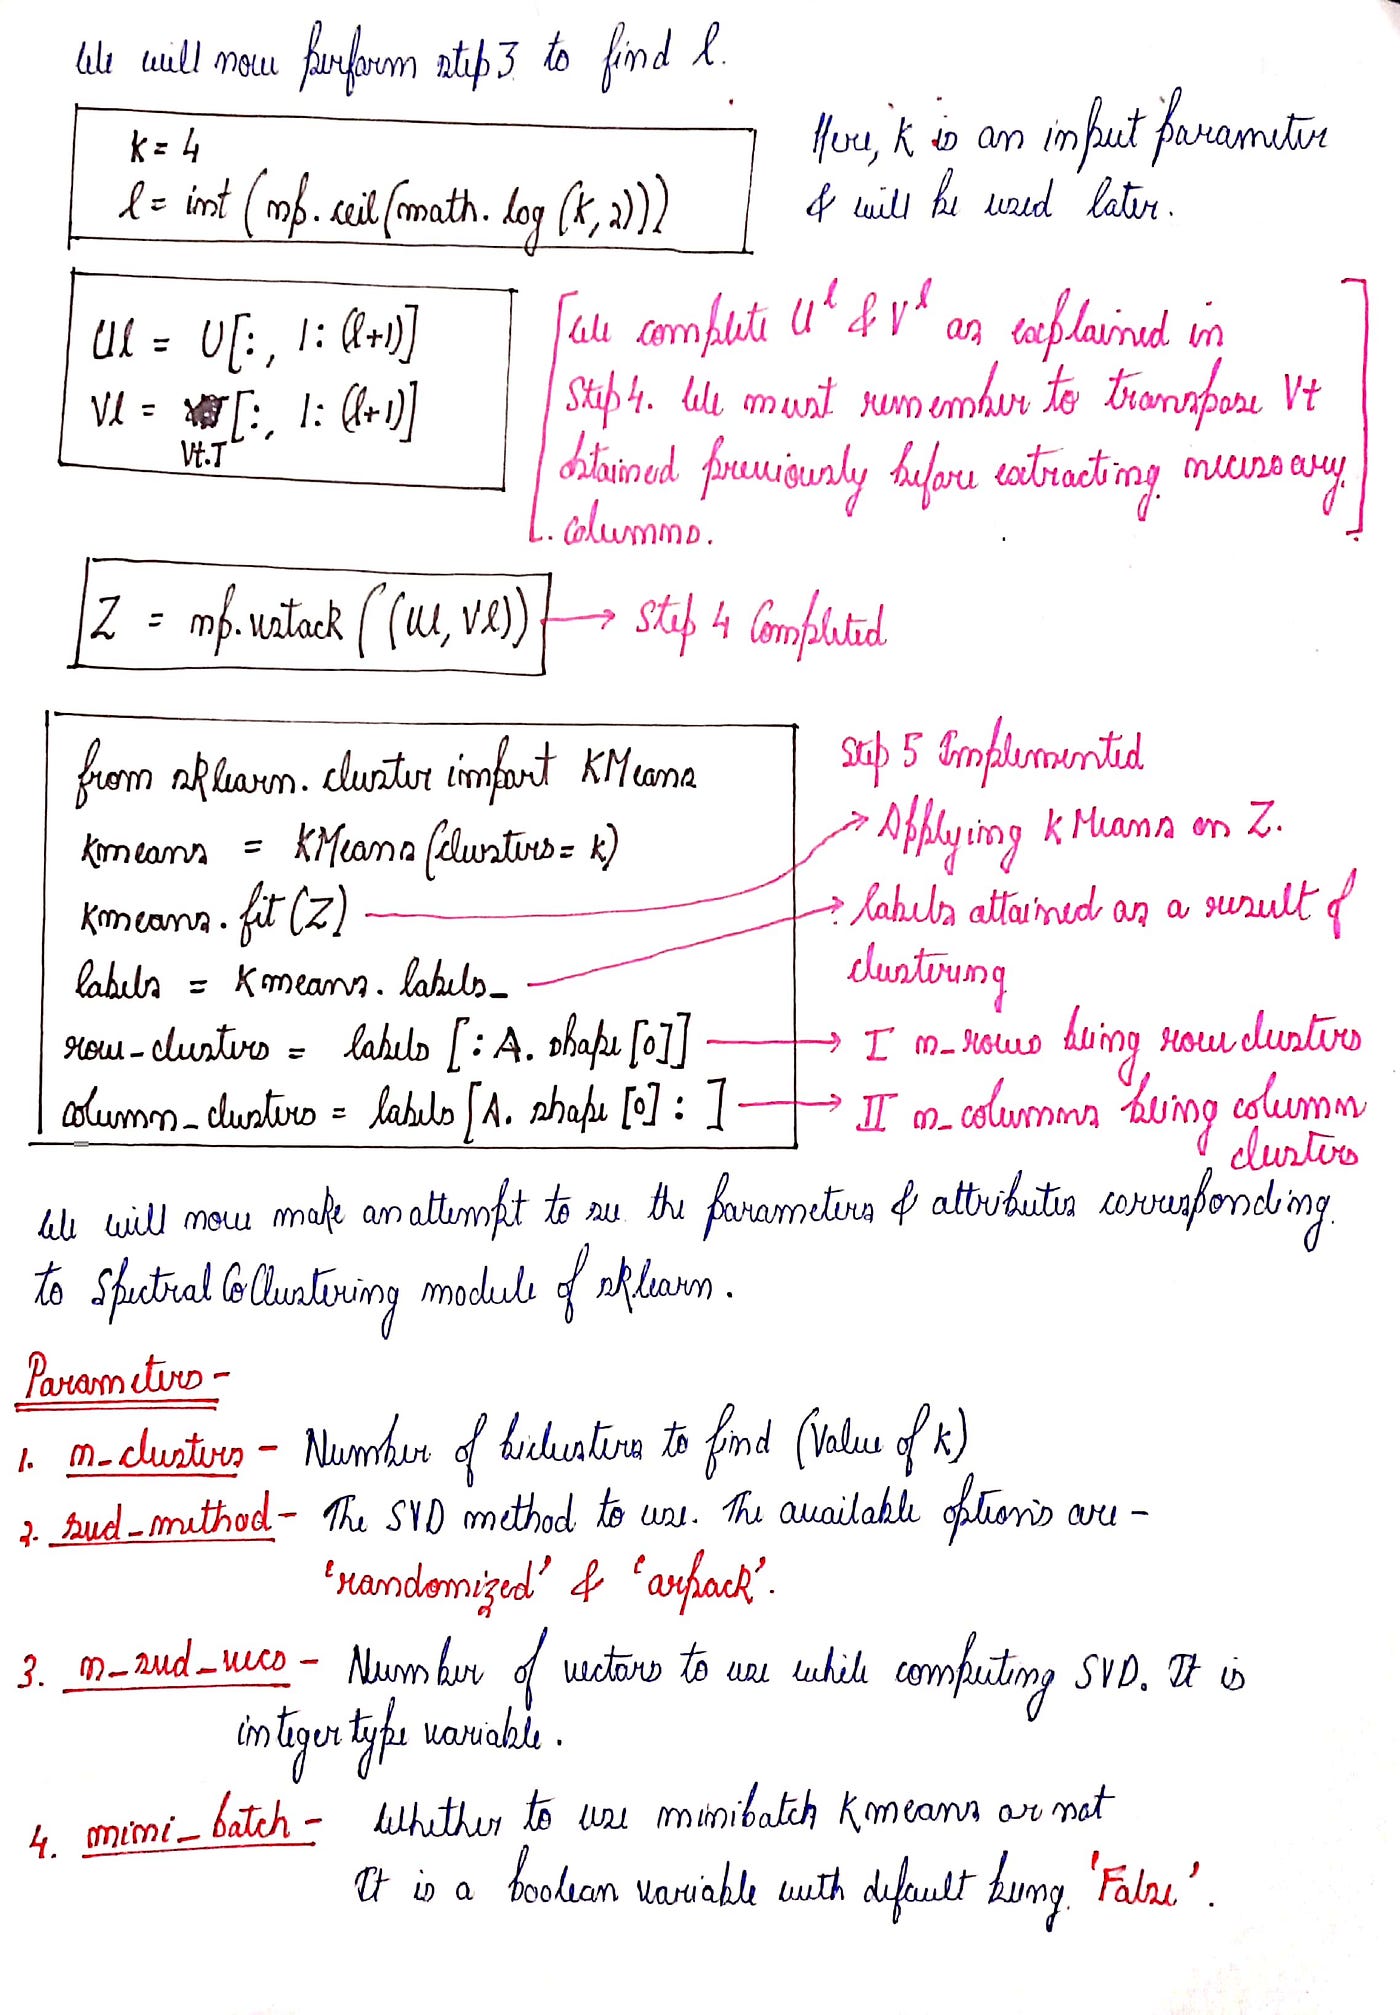 We will now perform step 3 to find l.
k = 4
l = int (np.ceil(math.log (k,2)))
Here, k is an input parameter
& will be used later.
Ul = U[:, 1:(l+1)]
Vl = [:, 1:(l+1)]
Vt.T
[We complete U^l & V^l as explained in
Step 4. We must remember to transpose Vt
obtained previously before extracting necessary
columns.]
Z = np.vstack((Ul, Vl)) → Step 4 Completed
from sklearn.cluster import KMeans
kmeans = KMeans(clusters = k)
kmeans.fit(Z)
labels = kmeans.labels_
row_clusters = labels [:A.shape[0]]
column_clusters = labels [A.shape[0]: ]
Step 5 Implemented
→ Applying KMeans on Z.
→ labels attained as a result of
clustering
→ I n_rows being row clusters
→ II n_columns being column
clusters
We will now make an attempt to see the parameters & attributes corresponding
to Spectral CoClustering module of sklearn.
Parameters -
1. n_clusters - Number of biclusters to find (Value of k)
2. svd_method - The SVD method to use. The available options are -
'randomized' & 'arpack'.
3. n_svd_vecs - Number of vectors to use while computing SVD. It is
integer type variable.
4. mini_batch - Whether to use minibatch kmeans or not
It is a boolean variable with default being 'False'.